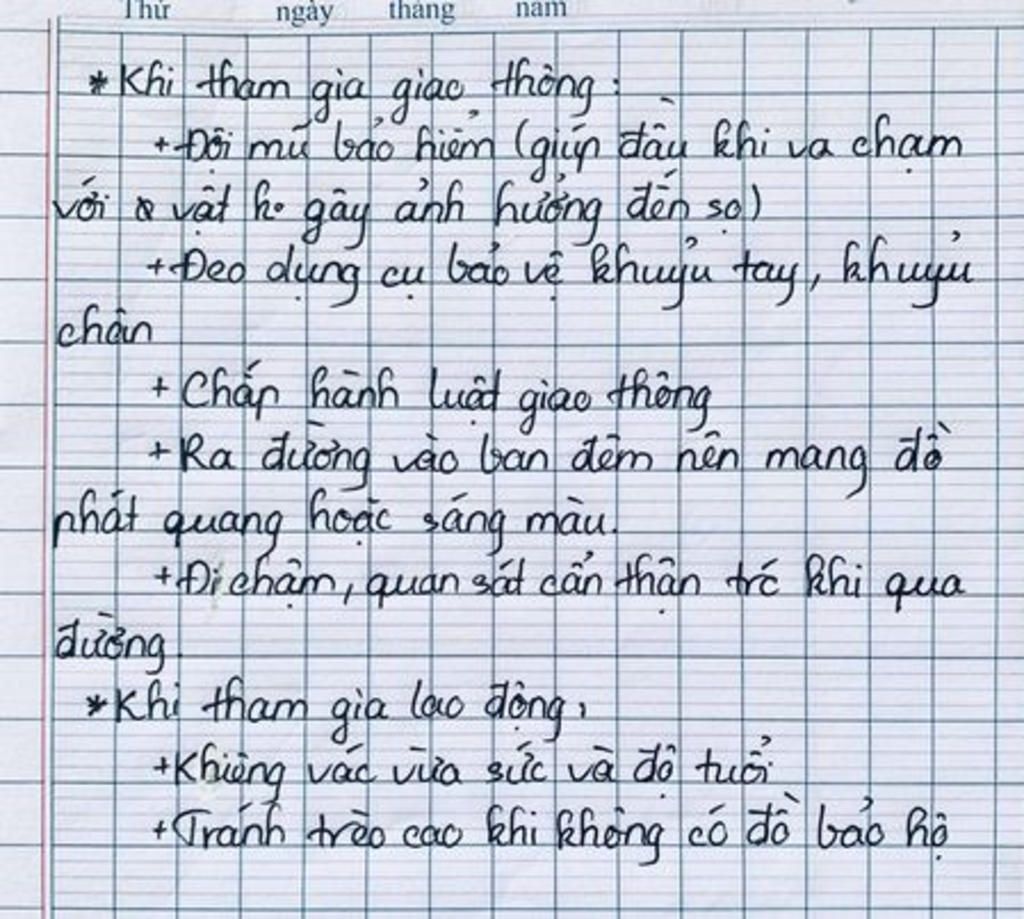 Thứ ngày tháng năm
* Khi tham gia giao thông:
+ Đội mũ bảo hiểm (giúp đầu khi va chạm
với vật k° gây ảnh hưởng đến sọ)
+ Đeo dụng cụ bảo vệ khuỷu tay, khuỷu
chân
+ Chấp hành luật giao thông
+ Ra đường vào ban đêm nên mang đồ
phát quang hoặc sáng màu.
+ Đi chậm, quan sát cẩn thận trc khi qua
đường.
* Khi tham gia lao động,
+ Khiêng vác vừa sức và độ tuổi
+ Tránh trèo cao khi không có đồ bảo hộ